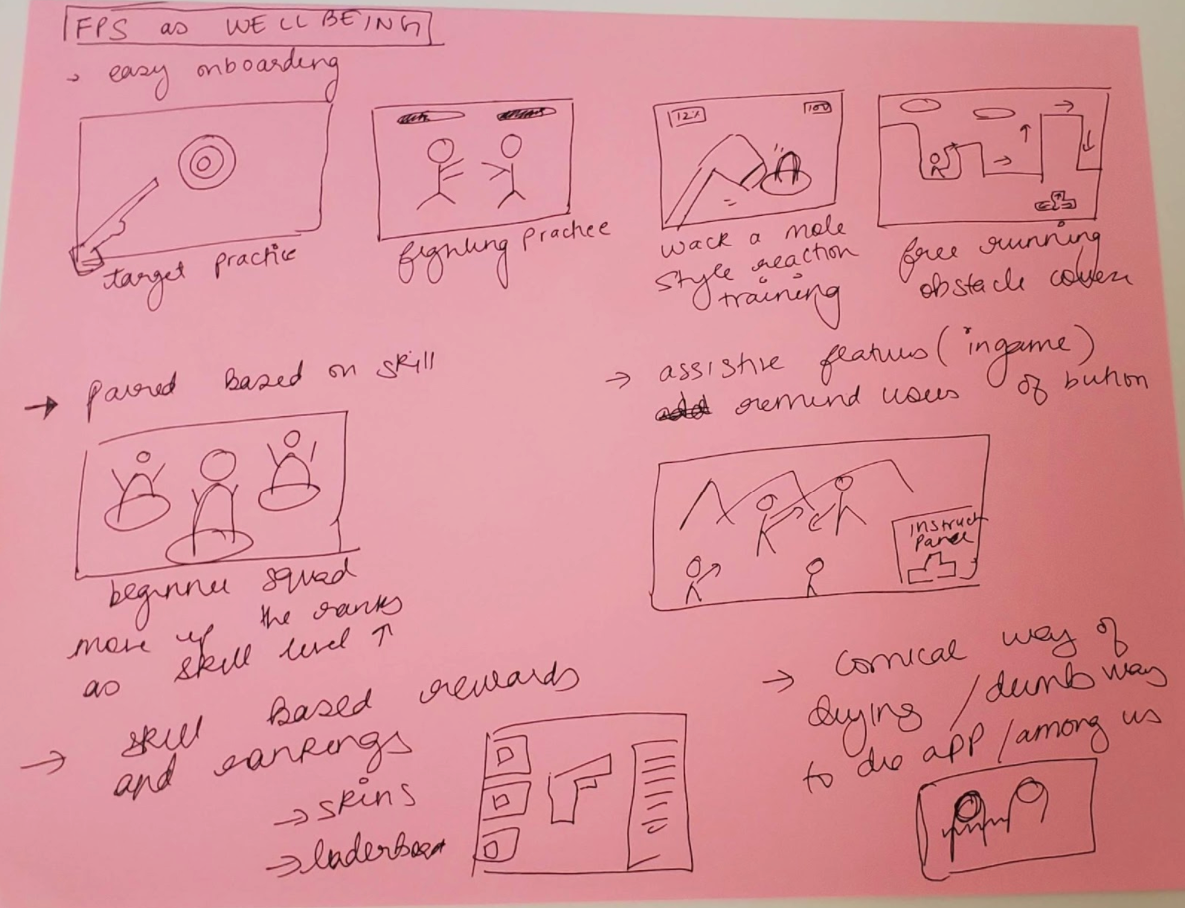 FPS as WELLBEING
→ easy onboarding
target practice
fighting practice
12x
100
wack a mole
style reaction
training
free running
obstacle course
→ paired based on skill
beginner squad
move up the ranks
as skill level ↑
→ assistive features (ingame)
remind users of button
instruct
panel
→ skill based rewards
and rankings
→ skins
→ laderboat
→ comical way of
dying / dumb way
to die app / among us